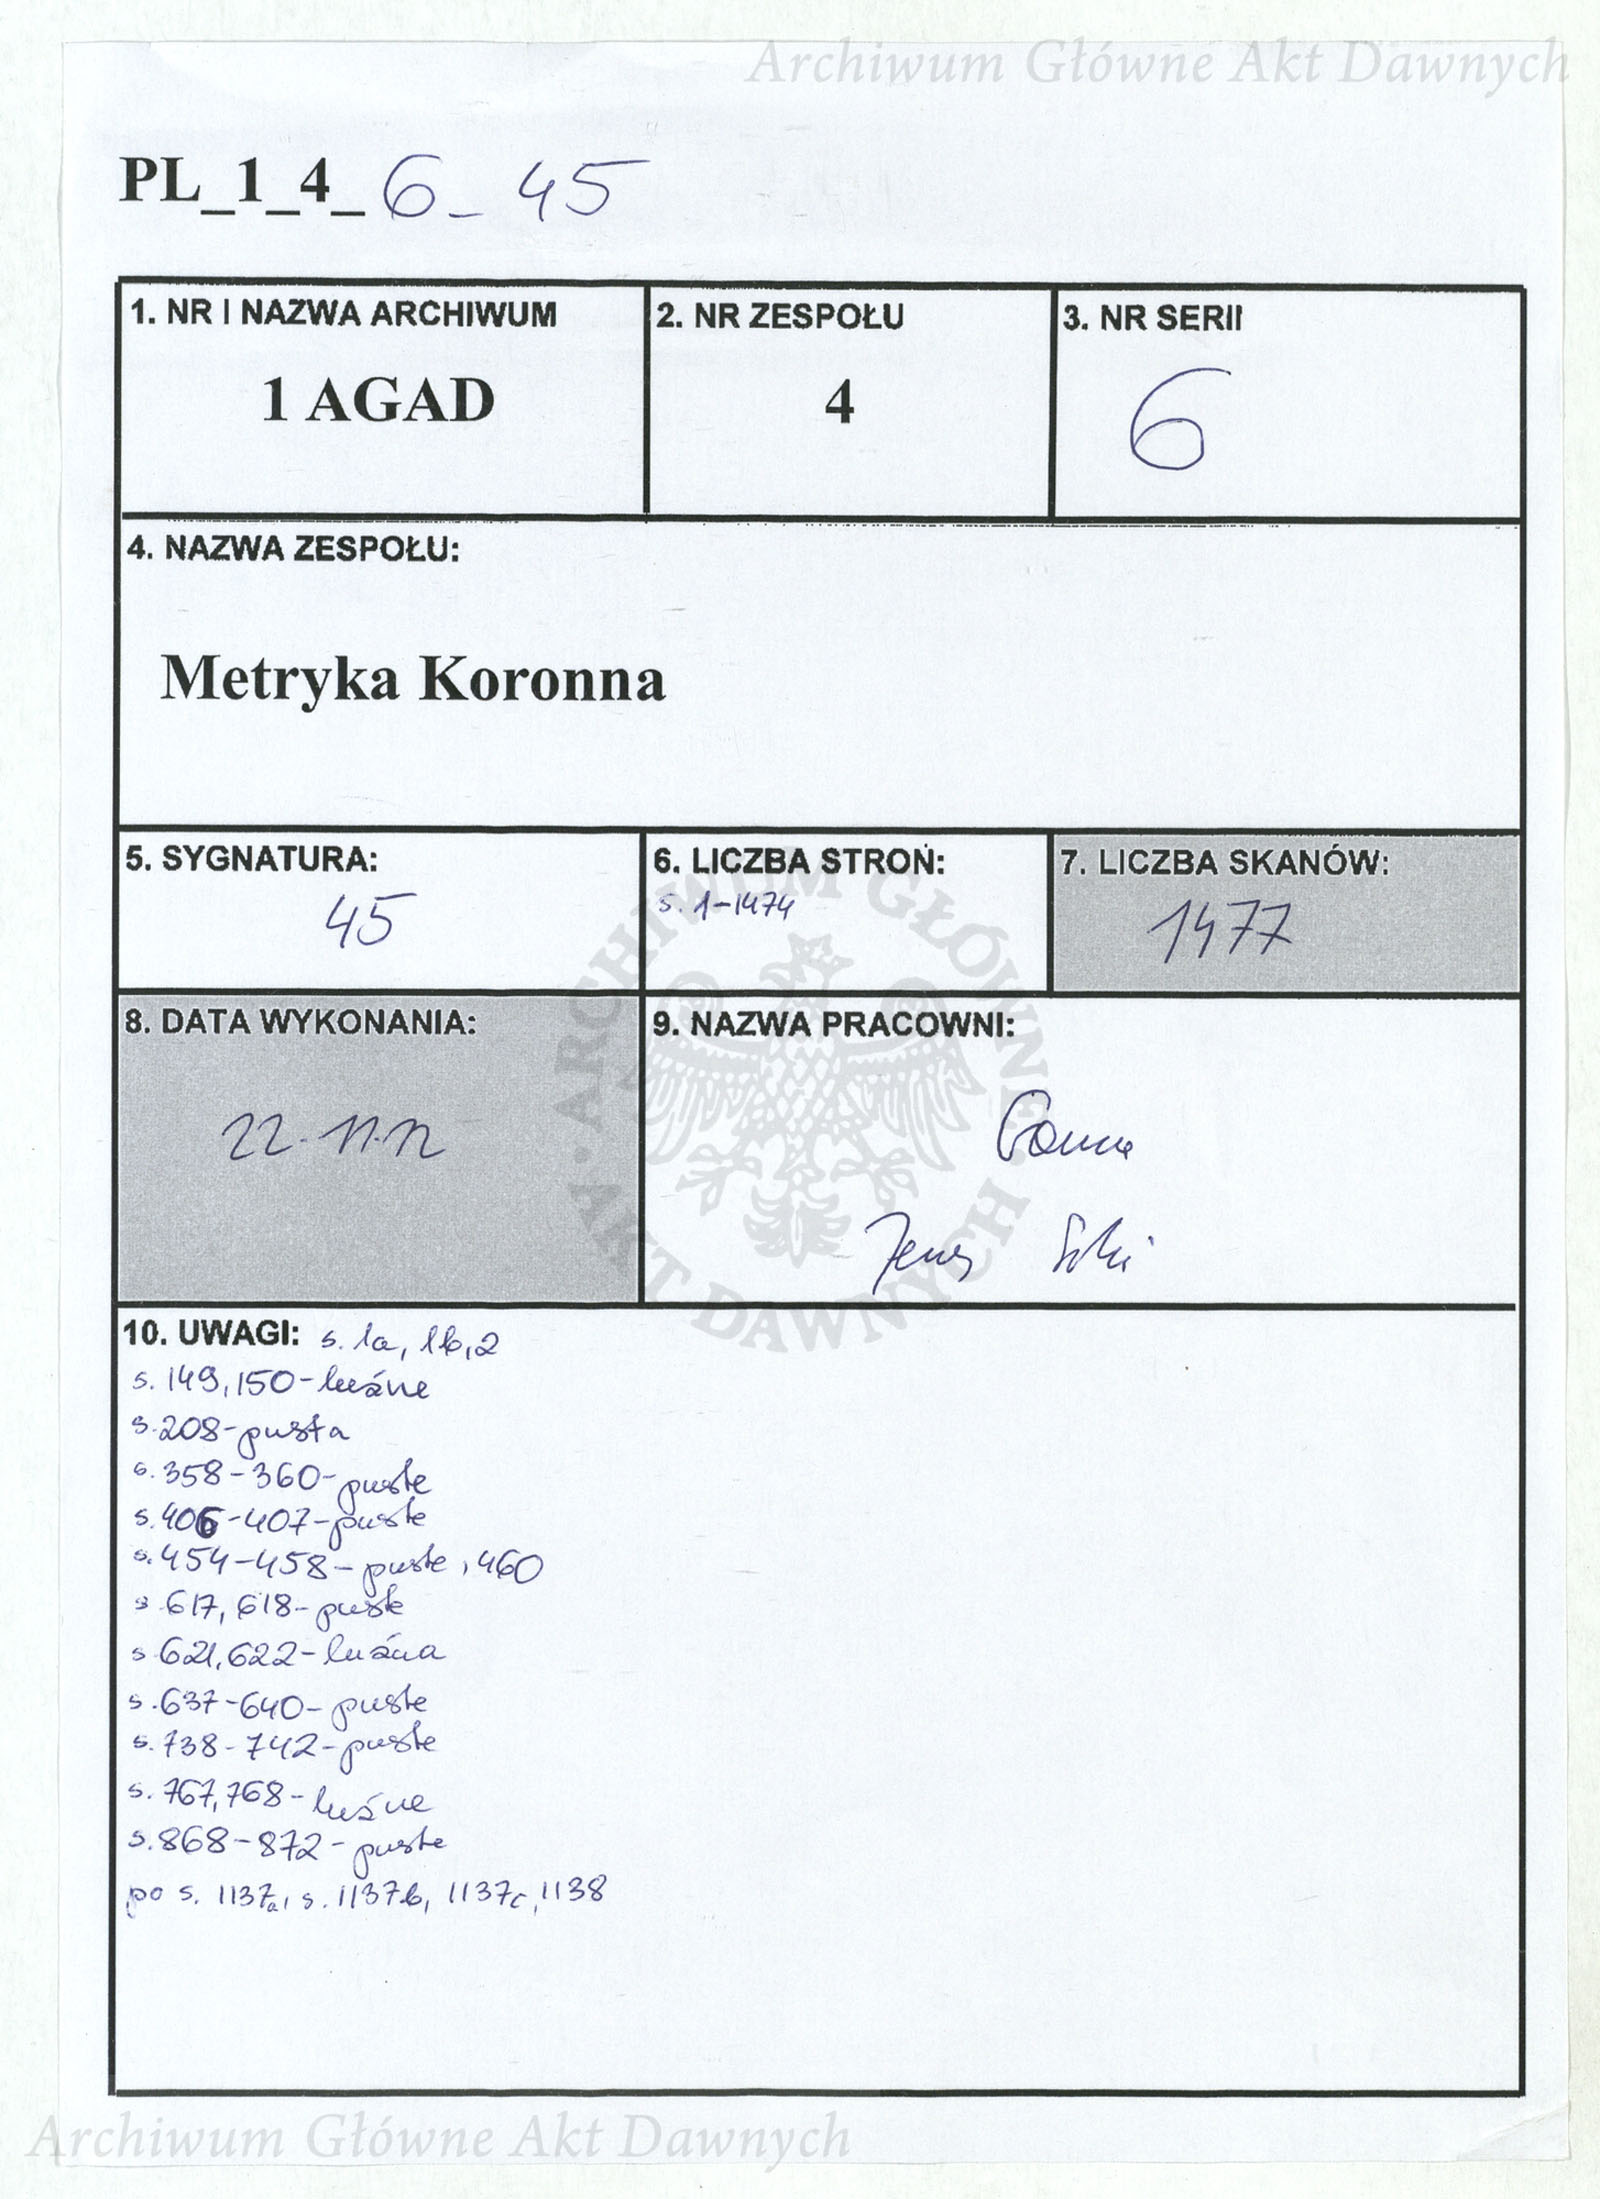 Archiwum Główne Akt Dawnych
PL_1_4_6_45
1. NR I NAZWA ARCHIWUM
1 AGAD
2. NR ZESPOŁU
4
3. NR SERII
6
4. NAZWA ZESPOŁU:
Metryka Koronna
5. SYGNATURA:
45
6. LICZBA STRON:
s. 1-1474
7. LICZBA SKANÓW:
1477
8. DATA WYKONANIA:
22.11.12
9. NAZWA PRACOWNI:
ARCHIWUM GŁÓWNE AKT DAWNYCH
10. UWAGI: s. 1a, 1b, 2
s. 149, 150 - luźne
s. 208 - pusta
s. 358 - 360 - puste
s. 406 - 407 - puste
s. 454 - 458 - puste, 460
s. 617, 618 - puste
s. 621, 622 - luźna
s. 637 - 640 - puste
s. 738 - 742 - puste
s. 767, 768 - luźne
s. 868 - 872 - puste
po s. 1137a, s. 1137b, 1137c, 1138
Archiwum Główne Akt Dawnych